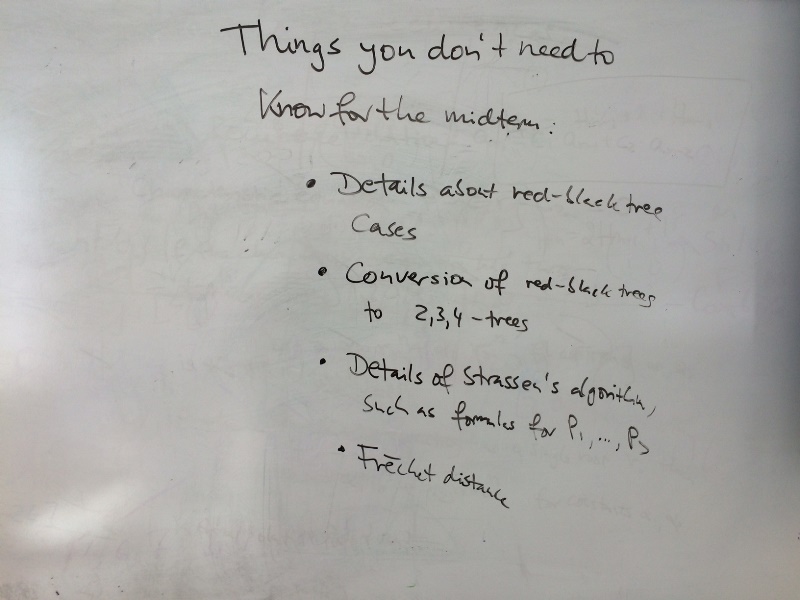 Things you don't need to
Know for the midterm:
• Details about red-black tree
Cases
• Conversion of red-black trees
to 2,3,4-trees
• Details of Strassen's algorithm,
such as formulas for P₁,...,P₇
• Fréchet distance